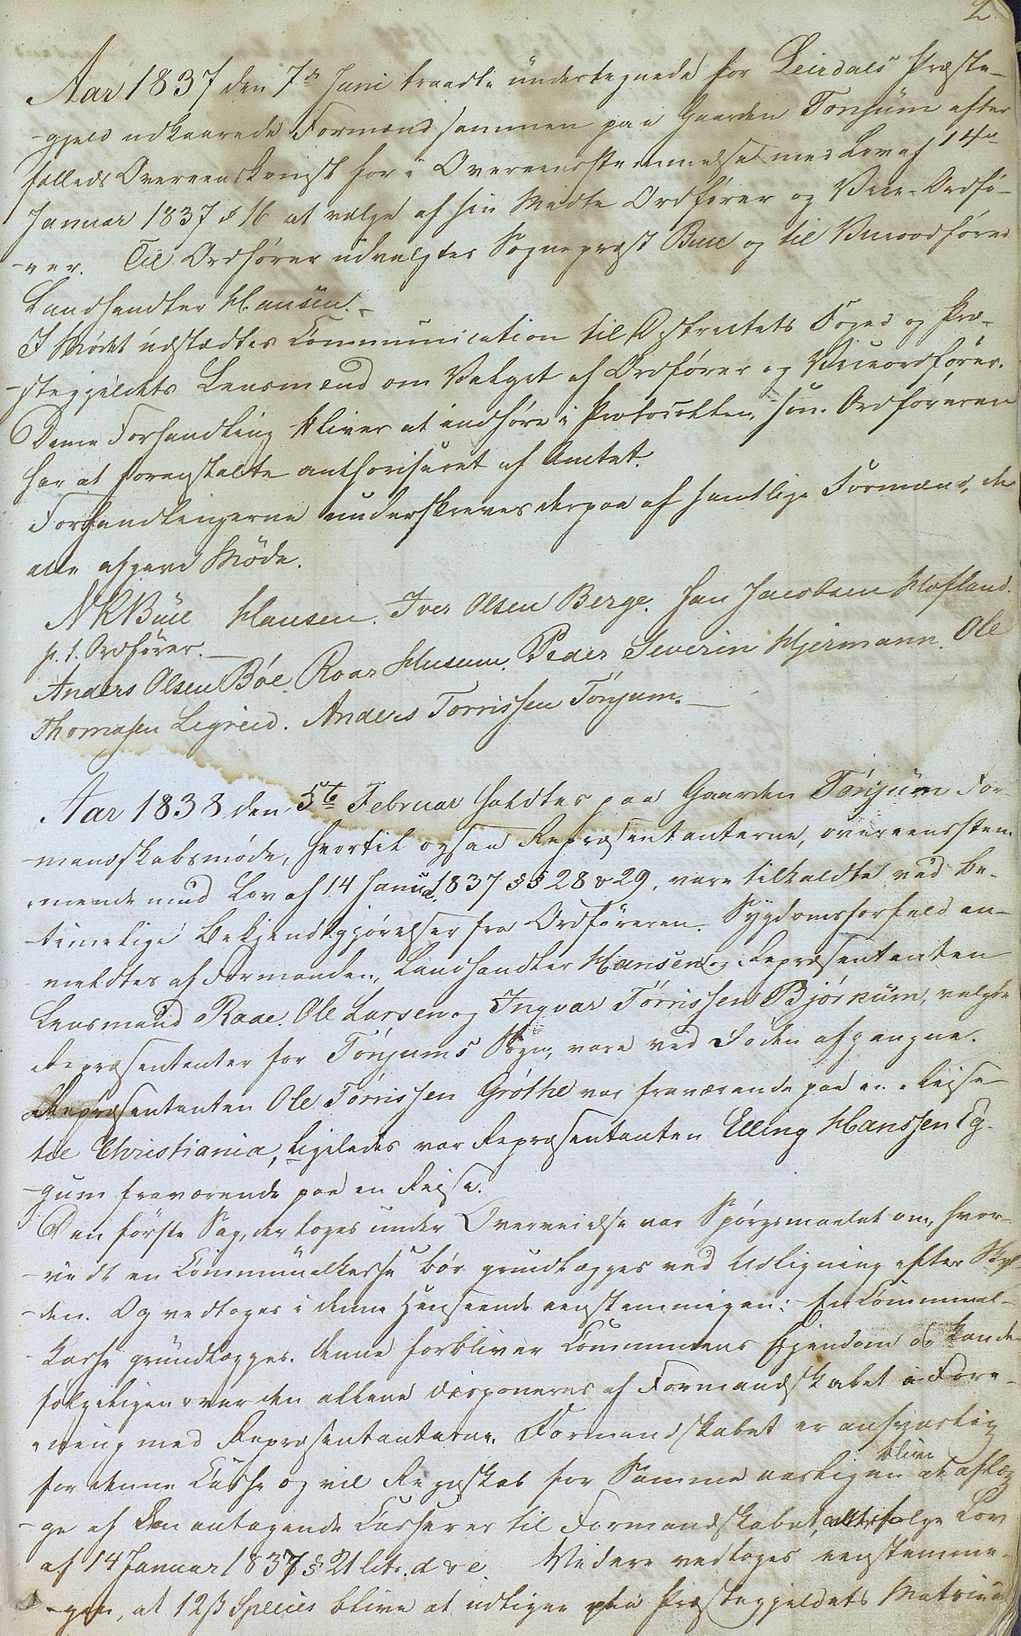 2
Aar 1837 den 7de Juni traadte undertegnede for Leirdals Præste-
-gjeld udkaarede Formænd sammen paa Gaarden Tønjum efter
fælleds Overeenskomst for i Overeensstemmelse med Lov af 14de
Januar 1837 § 16 at vælge af sin Midte Ordfører og Vice-Ordfø-
-rer. Til Ordfører udvalgtes Sognepræst Buce og til Viceordfører
Landhandler Hansen.-
I Mødet udstædtes Communication til Distriktets Foged og Præ-
-stegjeldets Lensmænd om Valget af Ordfører og Viceordfører.
Denne Forhandling bliver at indføre i Protocollen, som Ordføreren
har at foranstalte authoriseret af Amtet.
Forhandlingerne underskreves derpaa af samtlige Formænd, der
alle afgave Møde.
N K Buce Hansen. Iver Olsen Berge. Jan Jacobsen Hofland.
p. t. Ordfører.-
Anders Olsen Bøe. Roar Husum. Peder Severin Hjermann. Ole
Thomasen Legreid. Anders Torrissen Tønjum.-
Aar 1838 den 5te Februar holdtes paa Gaarden Tønjum For-
-mandskabsmøde, hvortil ogsaa Repræsentanterne, overeensstem-
-mende med Lov af 14 Januar 1837 §§ 28 & 29, vare tilkaldte ved be-
-timelige Bekjendtgjørelser fra Ordføreren. Sygdomsforfald an-
-meldtes af Formanden, Landhandler Hansen og Repræsentanten
Lensmand Raae. Ole Larsen og Ingvar Tørrissen Bjørkum, valgte
Repræsentanter for Tønjums Sogn, vare ved Døden afgangne.
Repræsentanten Ole Tørrissen Grøthe var fraværende paa en Reise
til Christiania, ligeledes var Repræsentanten Elling Hanssen Eg-
-gum fraværende paa en Reise.
Den første Sag, der toges under Overveielse var Spørgsmaalet om, hvor-
-vidt en Communalkasse bør grundlægges ved Udligning efter Skyl-
-den. Og vedtoges i denne Henseende eenstemmigen: En Communal-
-kasse grundlægges. Denne forbliver Communens Ejendom og kan der
følgeligen over den allene disponeres af Formandskabet i Fore-
-ning med Repræsentanterne. Formandskabet er ansvarlig
for denne Casse og vil Regnskab for Samme aarligen blive at aflæg-
-ge af den antagende Casserer til Formandskabet, alt ifølge Lov
af 14 Januar 1837 § 21 litr. d & e. Videre vedtoges eenstemmi-
-gen, at 12 ß Species blive at udligne paa Præstegjeldets Matricul